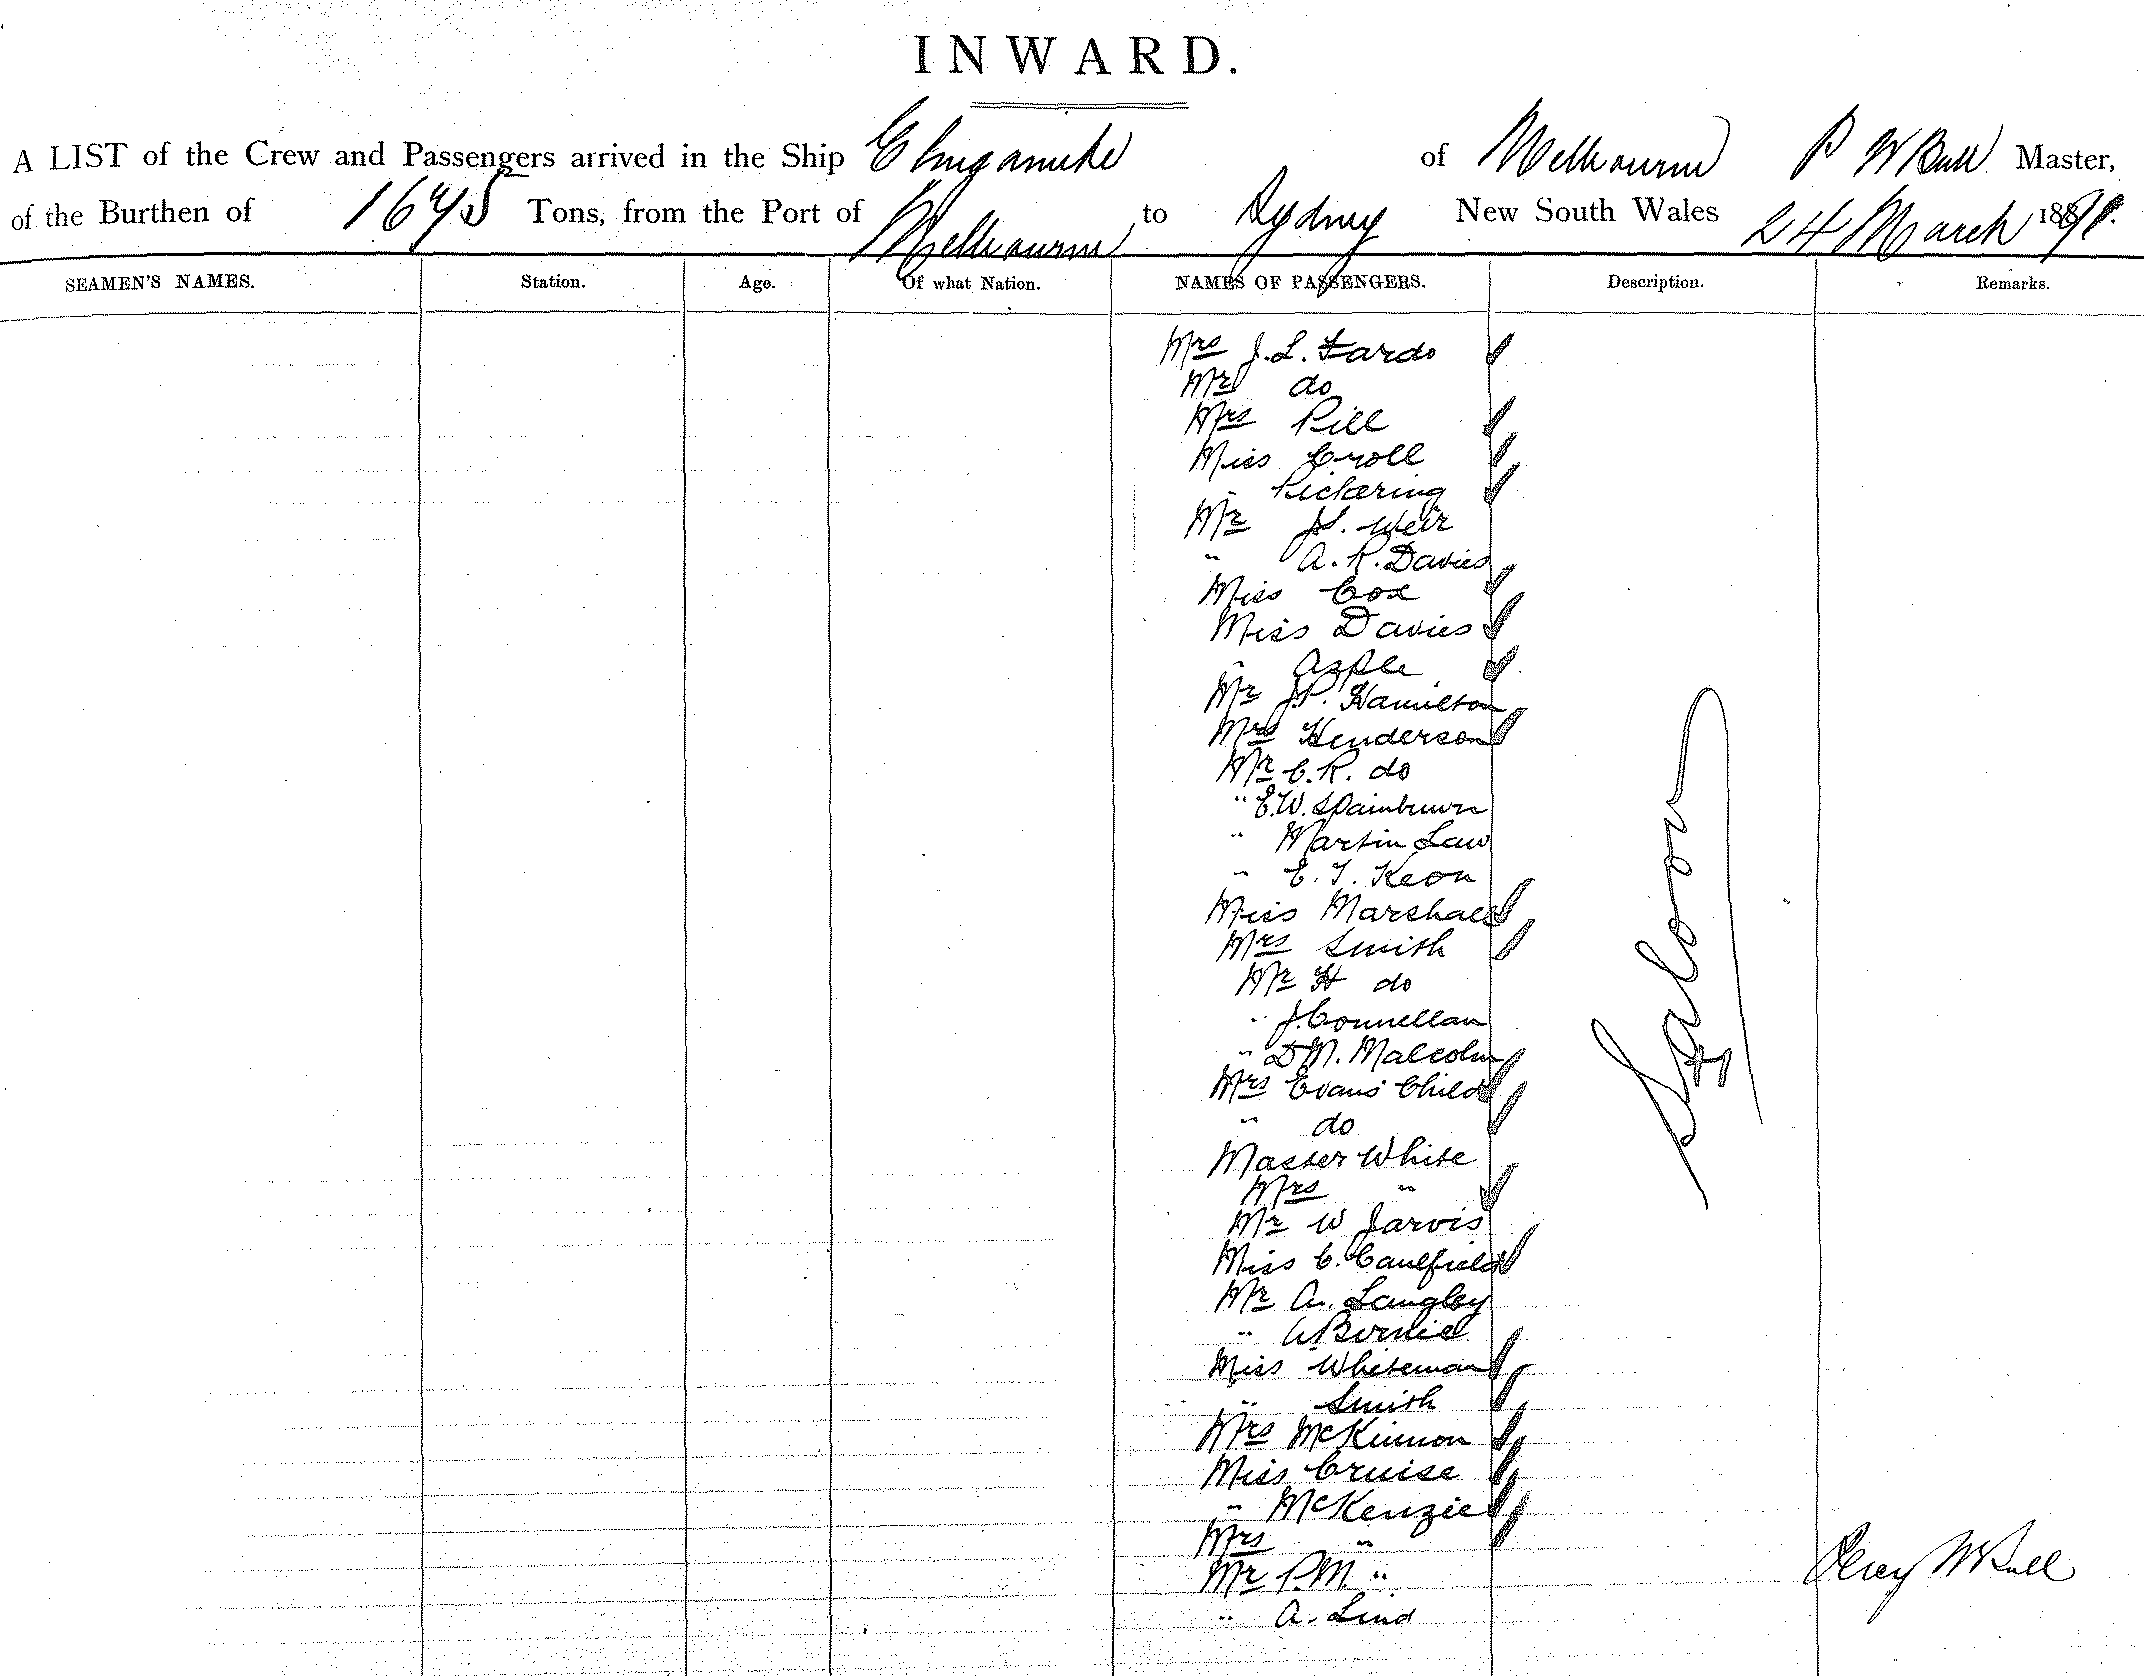 INWARD.
A LIST of the Crew and Passengers arrived in the Ship Elingamite of Melbourne P W Bull Master,
of the Burthen of 1675 Tons, from the Port of Melbourne to Sydney New South Wales 24 March 188
SEAMEN'S NAMES. Station. Age. Of what Nation. NAMES OF PASSENGERS. Description. Remarks.
Mrs J. L. Fardo
Mr do
Mrs Pill
Miss Croll
" Pickering
Mr Weir
" A. R. Davies
Miss Cox
Miss Davies
"
Mr J.P. Hamilton
Mrs Henderson
Mr C. R. do
" E.W.
" Martin Law
" E. T. Keon
Miss Marshall
Mrs Smith
Mr H do
" J. Connellan
" D M. Malcolm
Mrs Evans Child
" do
Master White
Mrs "
Mr W Jarvis
Miss C. Caulfield
Mr A. Langley
"
Miss Whiteman
" Smith
Mrs McKinnon
Miss Cruise
" McKenzie
Mrs "
Mr P.M. "
" A. Lind
Saloon
Percy W Bull